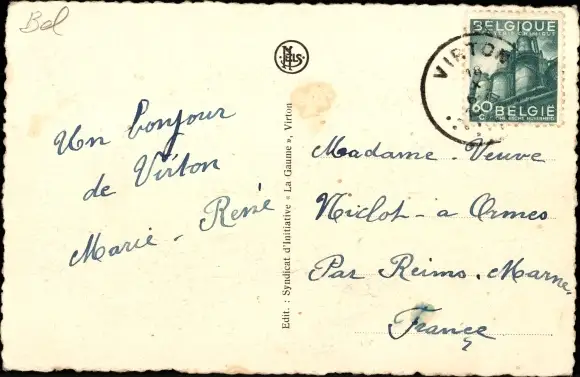 Bel
NELS
BELGIQUE
60 C
BELGIË
VIRTON
Un bonjour
de Virton
Marie - René
Edit. : Syndicat d'Initiative « La Gaume », Virton
Madame - Veuve
Niclot - à Ormes
Par Reims. Marne.
France